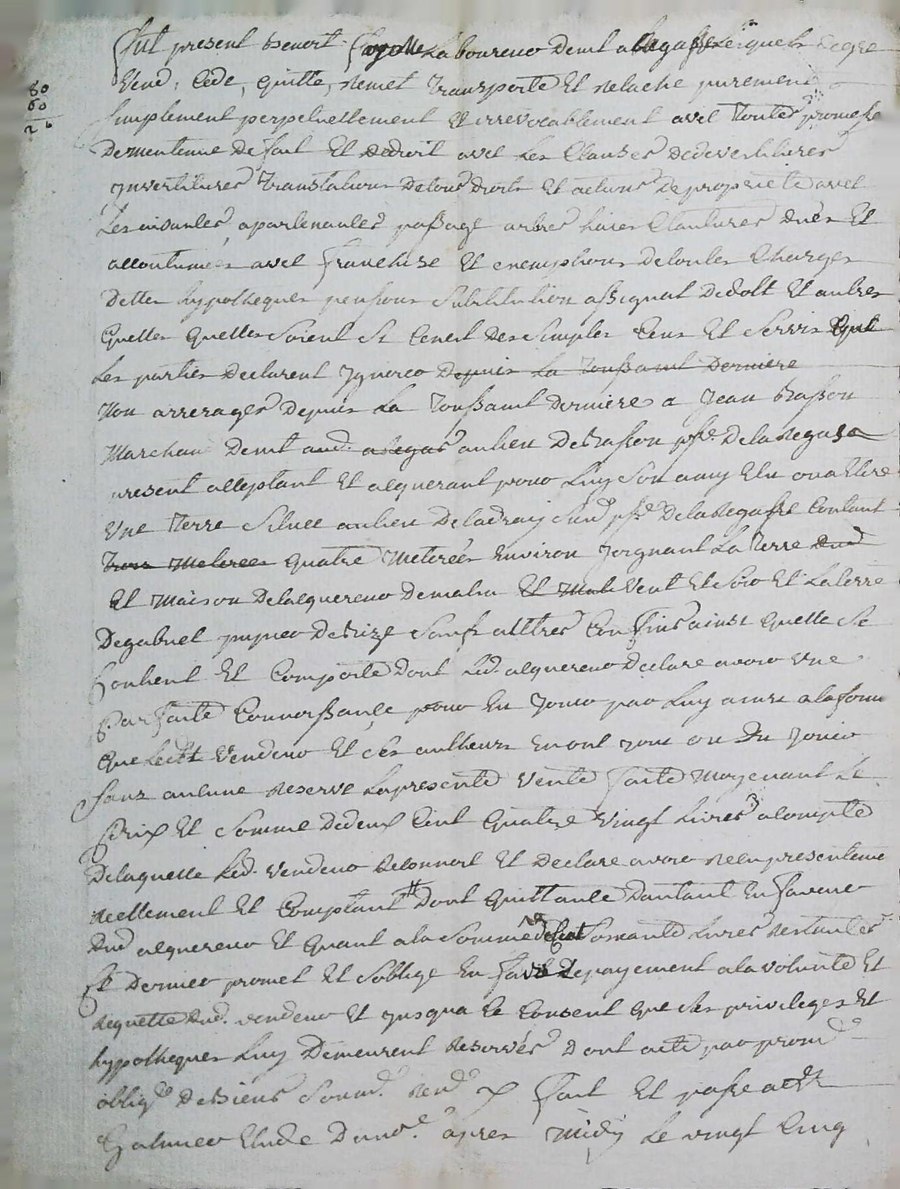 80
60
20
fut present benoit laboureur demt a lequel de gre
vend, cede, quitte, remet transporte et relache purement
simplement perpetuellement et irrevocablement avec toutte promesse
de mentenue de fait et de droit avec les clauses de devestitures
investitures translations de tous droits et actions de proprieté avec
les aisances apartenances passage arbres haies clautures dues et
accoutumées avec franchise et exemptions de toutes charges
dettes hypotheques pensions substitution assignat de dolt et autres
quelles quelles soient si cenest des simples cens et servis que
les parties declarent ignorer depuis la toussaint derniere
non arrerages depuis la toussaint derniere a jean brasson
marchand demt aud. au lieu de brasson psse. de la
present acceptant et acquerant pour luy son amy elu ou a elire
une terre située au lieu de susd. psse. de la contant
trois meterées quatre meterées environ joignant la terre dud
et maison de lacquereur de matin et vent et soir et la terre
de gabriel de bize sauf autres confins ainsi quelle se
contient et comporte dont led. acquereur declare avoir une
parfaite connoissance pour en jouir par luy ainsi a la forme
que ledt vendeur et ses autheurs en ont joui ou du jouir
sans aucune reserve la presente vente faite moyenant le
prix et somme de deux cent quatre vingt livres a compte
de laquelle led. vendeur reconnoit et declare avoir recu presentement
reellement et comptant # dont quittance dautant en faveur
dud acquereur et quant a la somme de soixante livres restantes
ce dernier promet et soblige en faire le payement a la volonté et
requette dud. vendeur et jusqua ce consent que ses privileges et
hypotheques luy demeurent reservés dont acte par prome
oblige de biens soumd. rend. x fait et passé a
galmier etude du noe. après midy le vingt cinq